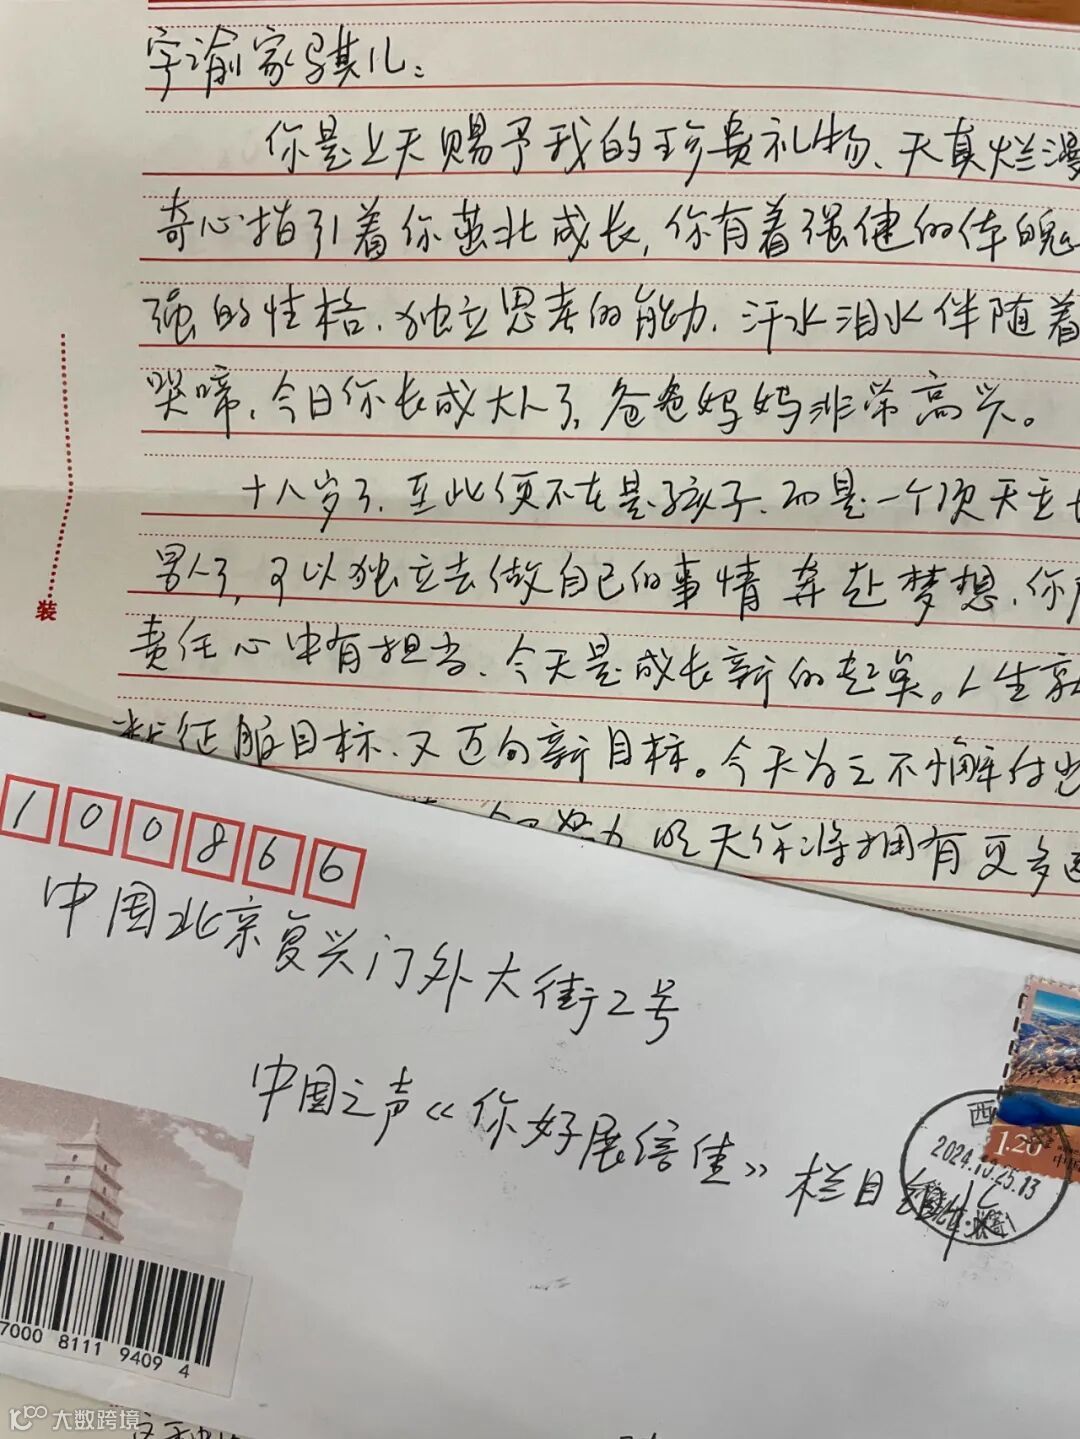 字谕家骐儿：
你是上天赐予我的珍贵礼物、天真烂漫
奇心指引着你茁壮成长，你有着强健的体魄
强的性格、独立思考的能力、汗水泪水伴随着
哭啼、今日你长成大人了，爸爸妈妈非常高兴。
十八岁了、至此便不在是孩子、而是一个顶天立
男人了，可以独立去做自己的事情奔赴梦想、你
责任心中有担当、今天是成长新的起点。人生就
断征服目标、又迈向新目标。今天为之不懈付出
努力 明天你将拥有更多
100866
中国北京复兴门外大街2号
中国之声《你好展信佳》栏目组收
装
西
2024.10.25.13
1.20
中国
7000 8111 9409 4
大数跨境